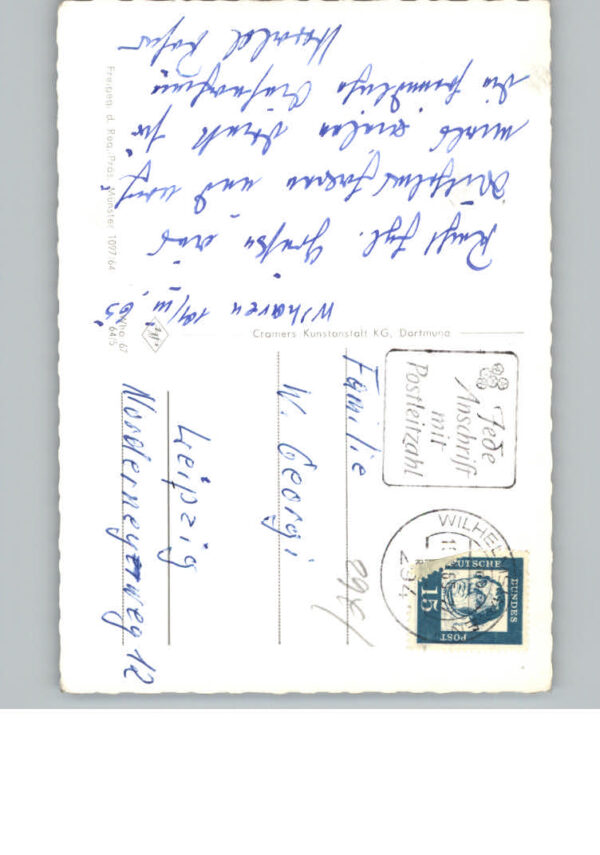 Recht hzl. Grüße aus
Wilhelmshaven und noch
mals vielen Dank für
die freundliche Aufnahme
Harald
Freigen. d. Reg. Präs. Münster 1097/64
Cramers Kunstanstalt KG, Dortmund
Jede
Anschrift
mit
Postleitzahl
294
DEUTSCHE
BUNDES
POST
15
Familie
W. Georgi
Leipzig
Norderneyerweg 12